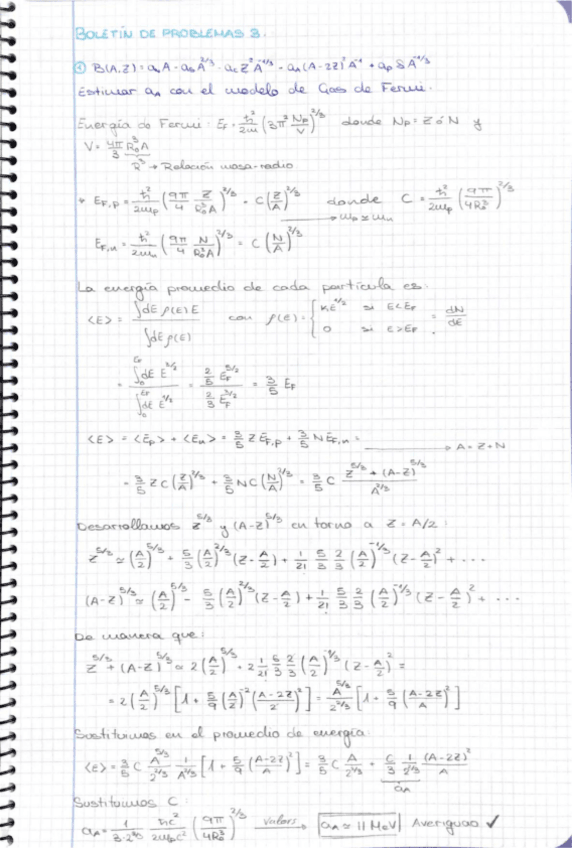 BOLETÍN DE PROBLEMAS 8.
① B(A,Z) = aᵥA - aₛA^{2/3} - a_c Z² A^{-1/3} - a_A (A-2Z)² A^{-1} + a_p δ A^{-1/2}
Estimar a_A con el modelo de Gas de Fermi.
Energía de Fermi: E_F = ħ²/2m (3π² N_P/V)^{2/3} donde N_P = Z ó N y
V = 4π/3 R₀³A
R³ → Relación masa-radio
E_{F,p} = ħ²/2m_p (9π/4 Z/R₀³A)^{2/3} = C (Z/A)^{2/3} donde C = ħ²/2m_p (9π/4R₀³)^{2/3}
→ m_p ≃ m_n
E_{F,n} = ħ²/2m_n (9π/4 N/R₀³A)^{2/3} = C (N/A)^{2/3}
La energía promedio de cada partícula es:
<E> = ∫dE ρ(E) E / ∫dE ρ(E) con ρ(E) = { KE^{1/2} si E<E_F ; 0 si E>E_F } = dN/dE
= ∫₀^{E_F} dE E^{3/2} / ∫₀^{E_F} dE E^{1/2} = 2/5 E_F^{5/2} / 2/3 E_F^{3/2} = 3/5 E_F
<E> = <E_p> + <E_n> = 3/5 Z E_{F,p} + 3/5 N E_{F,n} = → A = Z + N
= 3/5 Z C (Z/A)^{2/3} + 3/5 N C (N/A)^{2/3} = 3/5 C Z^{5/3} + (A-Z)^{5/3} / A^{2/3}
Desarrollamos Z^{5/3} y (A-Z)^{5/3} en torno a Z = A/2:
Z^{5/3} ≃ (A/2)^{5/3} + 5/3 (A/2)^{2/3} (Z - A/2) + 1/2! 5/3 2/3 (A/2)^{-1/3} (Z - A/2)² + ...
(A-Z)^{5/3} ≃ (A/2)^{5/3} - 5/3 (A/2)^{2/3} (Z - A/2) + 1/2! 5/3 2/3 (A/2)^{-1/3} (Z - A/2)² + ...
De manera que:
Z^{5/3} + (A-Z)^{5/3} ≃ 2 (A/2)^{5/3} + 2 1/2! 5/3 2/3 (A/2)^{-1/3} (Z - A/2)² =
= 2 (A/2)^{5/3} [1 + 5/9 (A/2)^{-2} (A-2Z/2)²] = A^{5/3}/2^{2/3} [1 + 5/9 (A-2Z/A)²]
Sustituimos en el promedio de energía:
<E> = 3/5 C A^{5/3}/2^{2/3} 1/A^{2/3} [1 + 5/9 (A-2Z/A)²] = 3/5 C A/2^{2/3} + C/3 1/2^{2/3} (A-2Z)²/A
a_A
Sustituimos C:
a_A = 1/3·2^{2/3} ħc²/2m_pc² (9π/4R₀³)^{2/3} valors → a_A ≃ 11 MeV Averiguao ✓